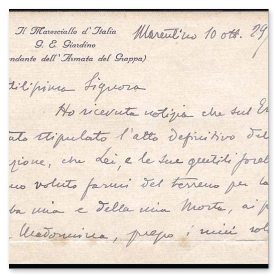 Il Maresciallo d'Italia
G. E. Giardino
ndante dell'Armata del Grappa)
Marentino 10 ott. 29
tilissima Signora
Ho ricevuta notizia che sul
stato stipulato l'atto definitivo del
zione, che Lei, e le sue gentili
no voluto farmi del terreno per la
ba mia e della mia Morta, ai p
Madonnina, prego i miei